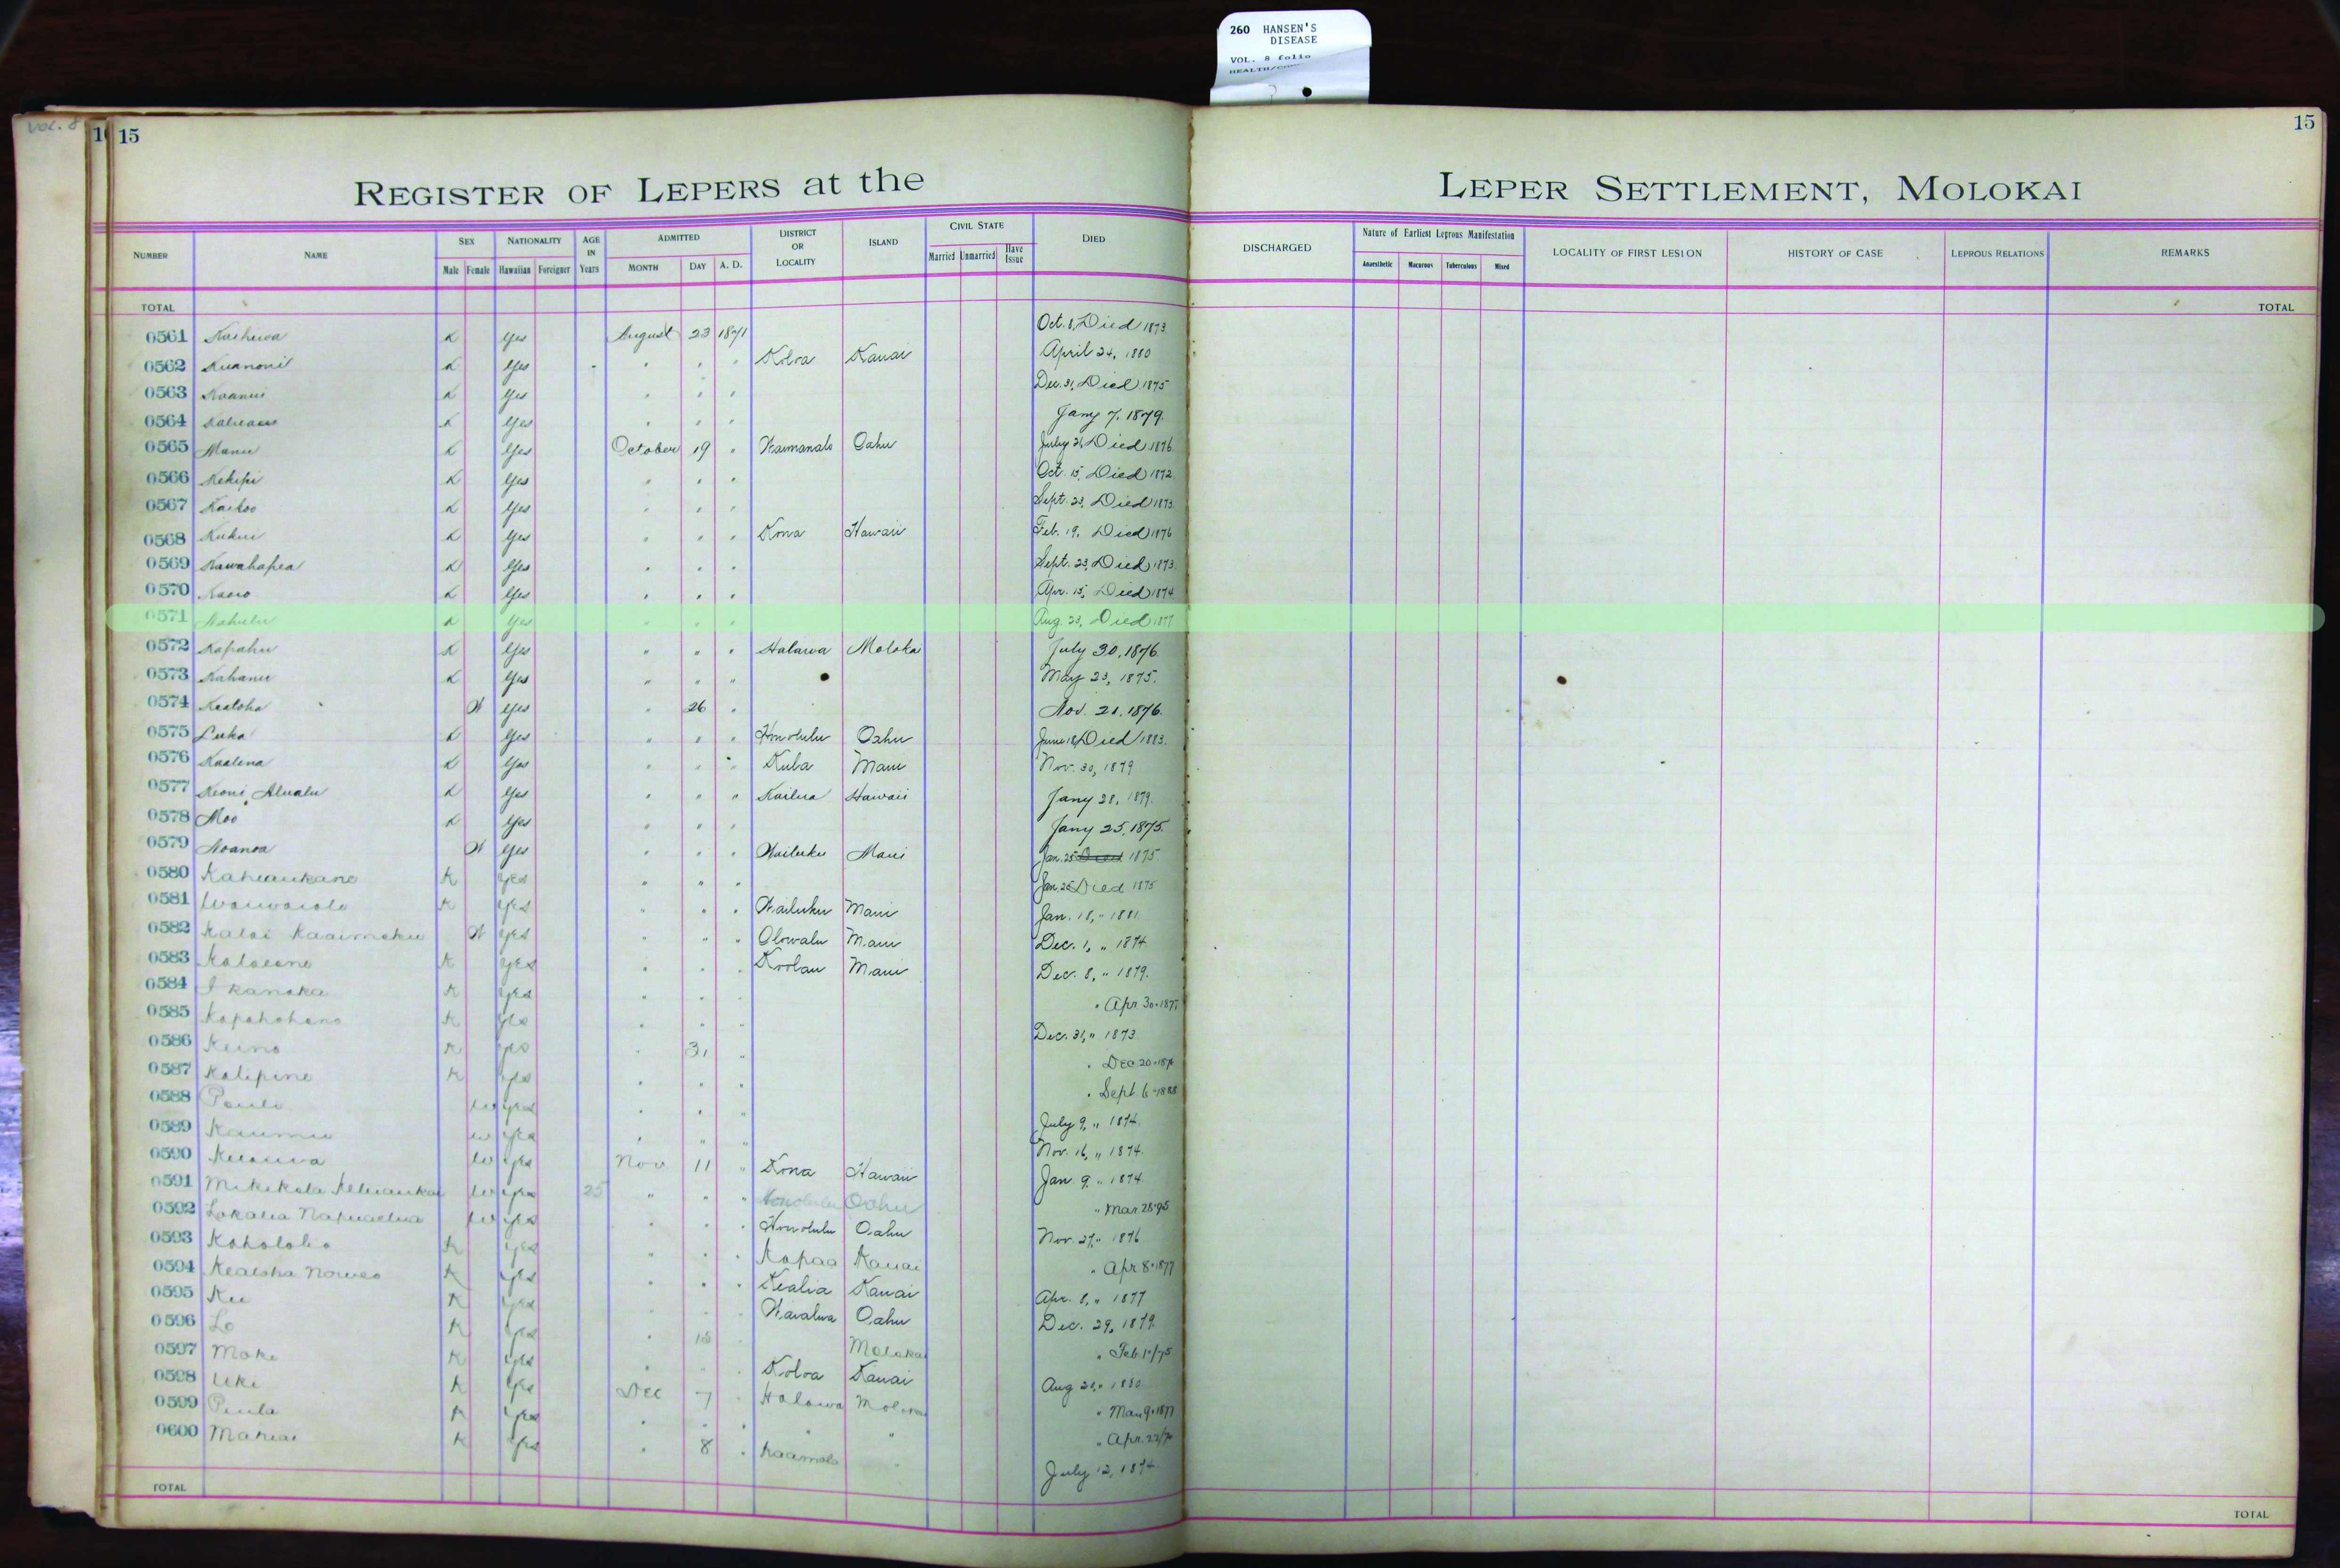 260 HANSEN'S
DISEASE
VOL. 8 folio
Vol. 8
15
15
REGISTER OF LEPERS at the LEPER SETTLEMENT, MOLOKAI
NUMBER NAME SEX Male Female NATIONALITY Hawaiian Foreigner AGE IN Years ADMITTED MONTH DAY A. D. DISTRICT OR LOCALITY ISLAND CIVIL STATE Married Unmarried Have Issue DIED DISCHARGED Nature of Earliest Leprous Manifestation Anaesthetic Macurous Tuberculous Mixed LOCALITY OF FIRST LESION HISTORY OF CASE LEPROUS RELATIONS REMARKS
TOTAL TOTAL
0561 K Yes August 23 1871 Oct. 8, Died 1873
0562 Kuanonii K Yes " " " Koloa Kauai April 24, 1880
0563 Koanui K Yes " " " Dec. 31, Died 1875
0564 K Yes " " " Jany 7, 1879.
0565 Manu K Yes October 19 " Waimanalo Oahu July 21, Died 1876
0566 Kekipi K Yes " " " Oct. 15, Died 1872
0567 Kaikoo K Yes " " " Sept. 23, Died 1873
0568 Kukui K Yes " " " Kona Hawaii Feb. 19, Died 1876
0569 Kawahapea K Yes " " " Sept. 23, Died 1873
0570 Kaoo K Yes " " " Apr. 15, Died 1874
0571 K Yes " " " Aug. 23, Died 1877
0572 Kapahu K Yes " " " Halawa Moloka July 30, 1876
0573 Kahanu K Yes " " " May 23, 1875.
0574 Kealoha W Yes " 26 " Nov. 21, 1876.
0575 Luka K Yes " " " Honolulu Oahu June 18 Died 1883.
0576 Kaalena K Yes " " " Kula Maui Nov. 30, 1879
0577 Keoni Alualu K Yes " " " Kailua Hawaii Jany 28, 1879.
0578 Moo K Yes " " " Jany 25, 1875.
0579 Noanoa W Yes " " " Wailuku Maui Jan. 25 Died 1875
0580 Kaheaukane K Yes " " " Jan. 25 Died 1875
0581 Waiwaiole K Yes " " " Wailuku Maui Jan. 18, " 1881
0582 Kalai Kaaimoku W Yes " " " Olowalu Maui Dec. 1, " 1874
0583 K Yes " " " Koolau Maui Dec. 8, " 1879.
0584 I kanaka K Yes " " " " Apr 30-187
0585 Kapahohano K Yes " " " Dec. 31, " 1873
0586 Keino K Yes " 31 " " Dec 20-187
0587 Kalipine K Yes " " " " Sept 6-1888
0588 Pauli W Yes " " " July 9, " 1874.
0589 Kaumu W Yes " " " Nov. 16, " 1874.
0590 W Yes Nov 11 " Kona Hawaii Jan 9 " 1874
0591 Mikikola W Yes 25 " " " Honolulu Oahu " Mar. 28-95
0592 Lokalia Napuaelua W Yes " " " Honolulu Oahu Nov. 27, " 1876
0593 Kahololio K Yes " " " Kapaa Kauai " Apr 8-1877
0594 Kealoha Noweo K Yes " " " Kealia Kauai Apr. 8, " 1877
0595 Ku K Yes " " " Waialua Oahu Dec. 29, 1879.
0596 Lo K Yes " 18 " Molokai " Feb 1"/75
0597 Moke K Yes " " " Koloa Kauai Aug 20, " 1880
0598 Uki K Yes Dec 7 " Halawa " Mar 9-1877
0599 Piula K Yes " " " " " " Apr. 22/
0600 K Yes " 8 " Kaamola " July 12, 1874
TOTAL TOTAL